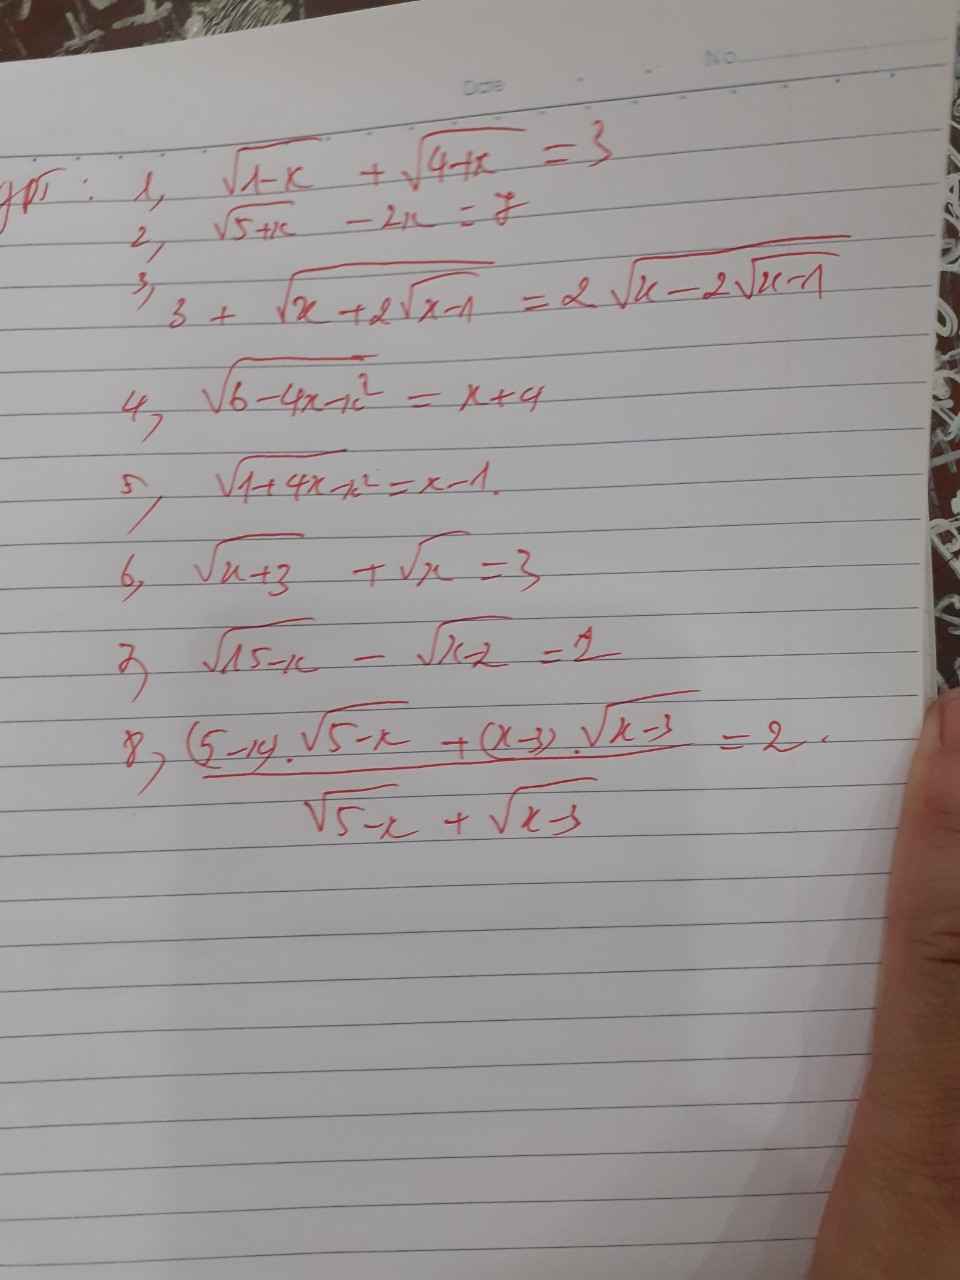 Date No.
gpt : 1, √(1-x) + √(4+x) = 3
2, √(5+x) - 2x = 7
3,
3 + √(x+2√(x-1)) = 2√(x-2√(x-1))
4, √(6-4x-x²) = x+4
5, √(1+4x-x²) = x-1.
6, √(x+3) + √x = 3
7, √(15-x) - √(x-2) = 2
8, (5-x).√(5-x) + (x-3).√(x-3) = 2.
√(5-x) + √(x-3)